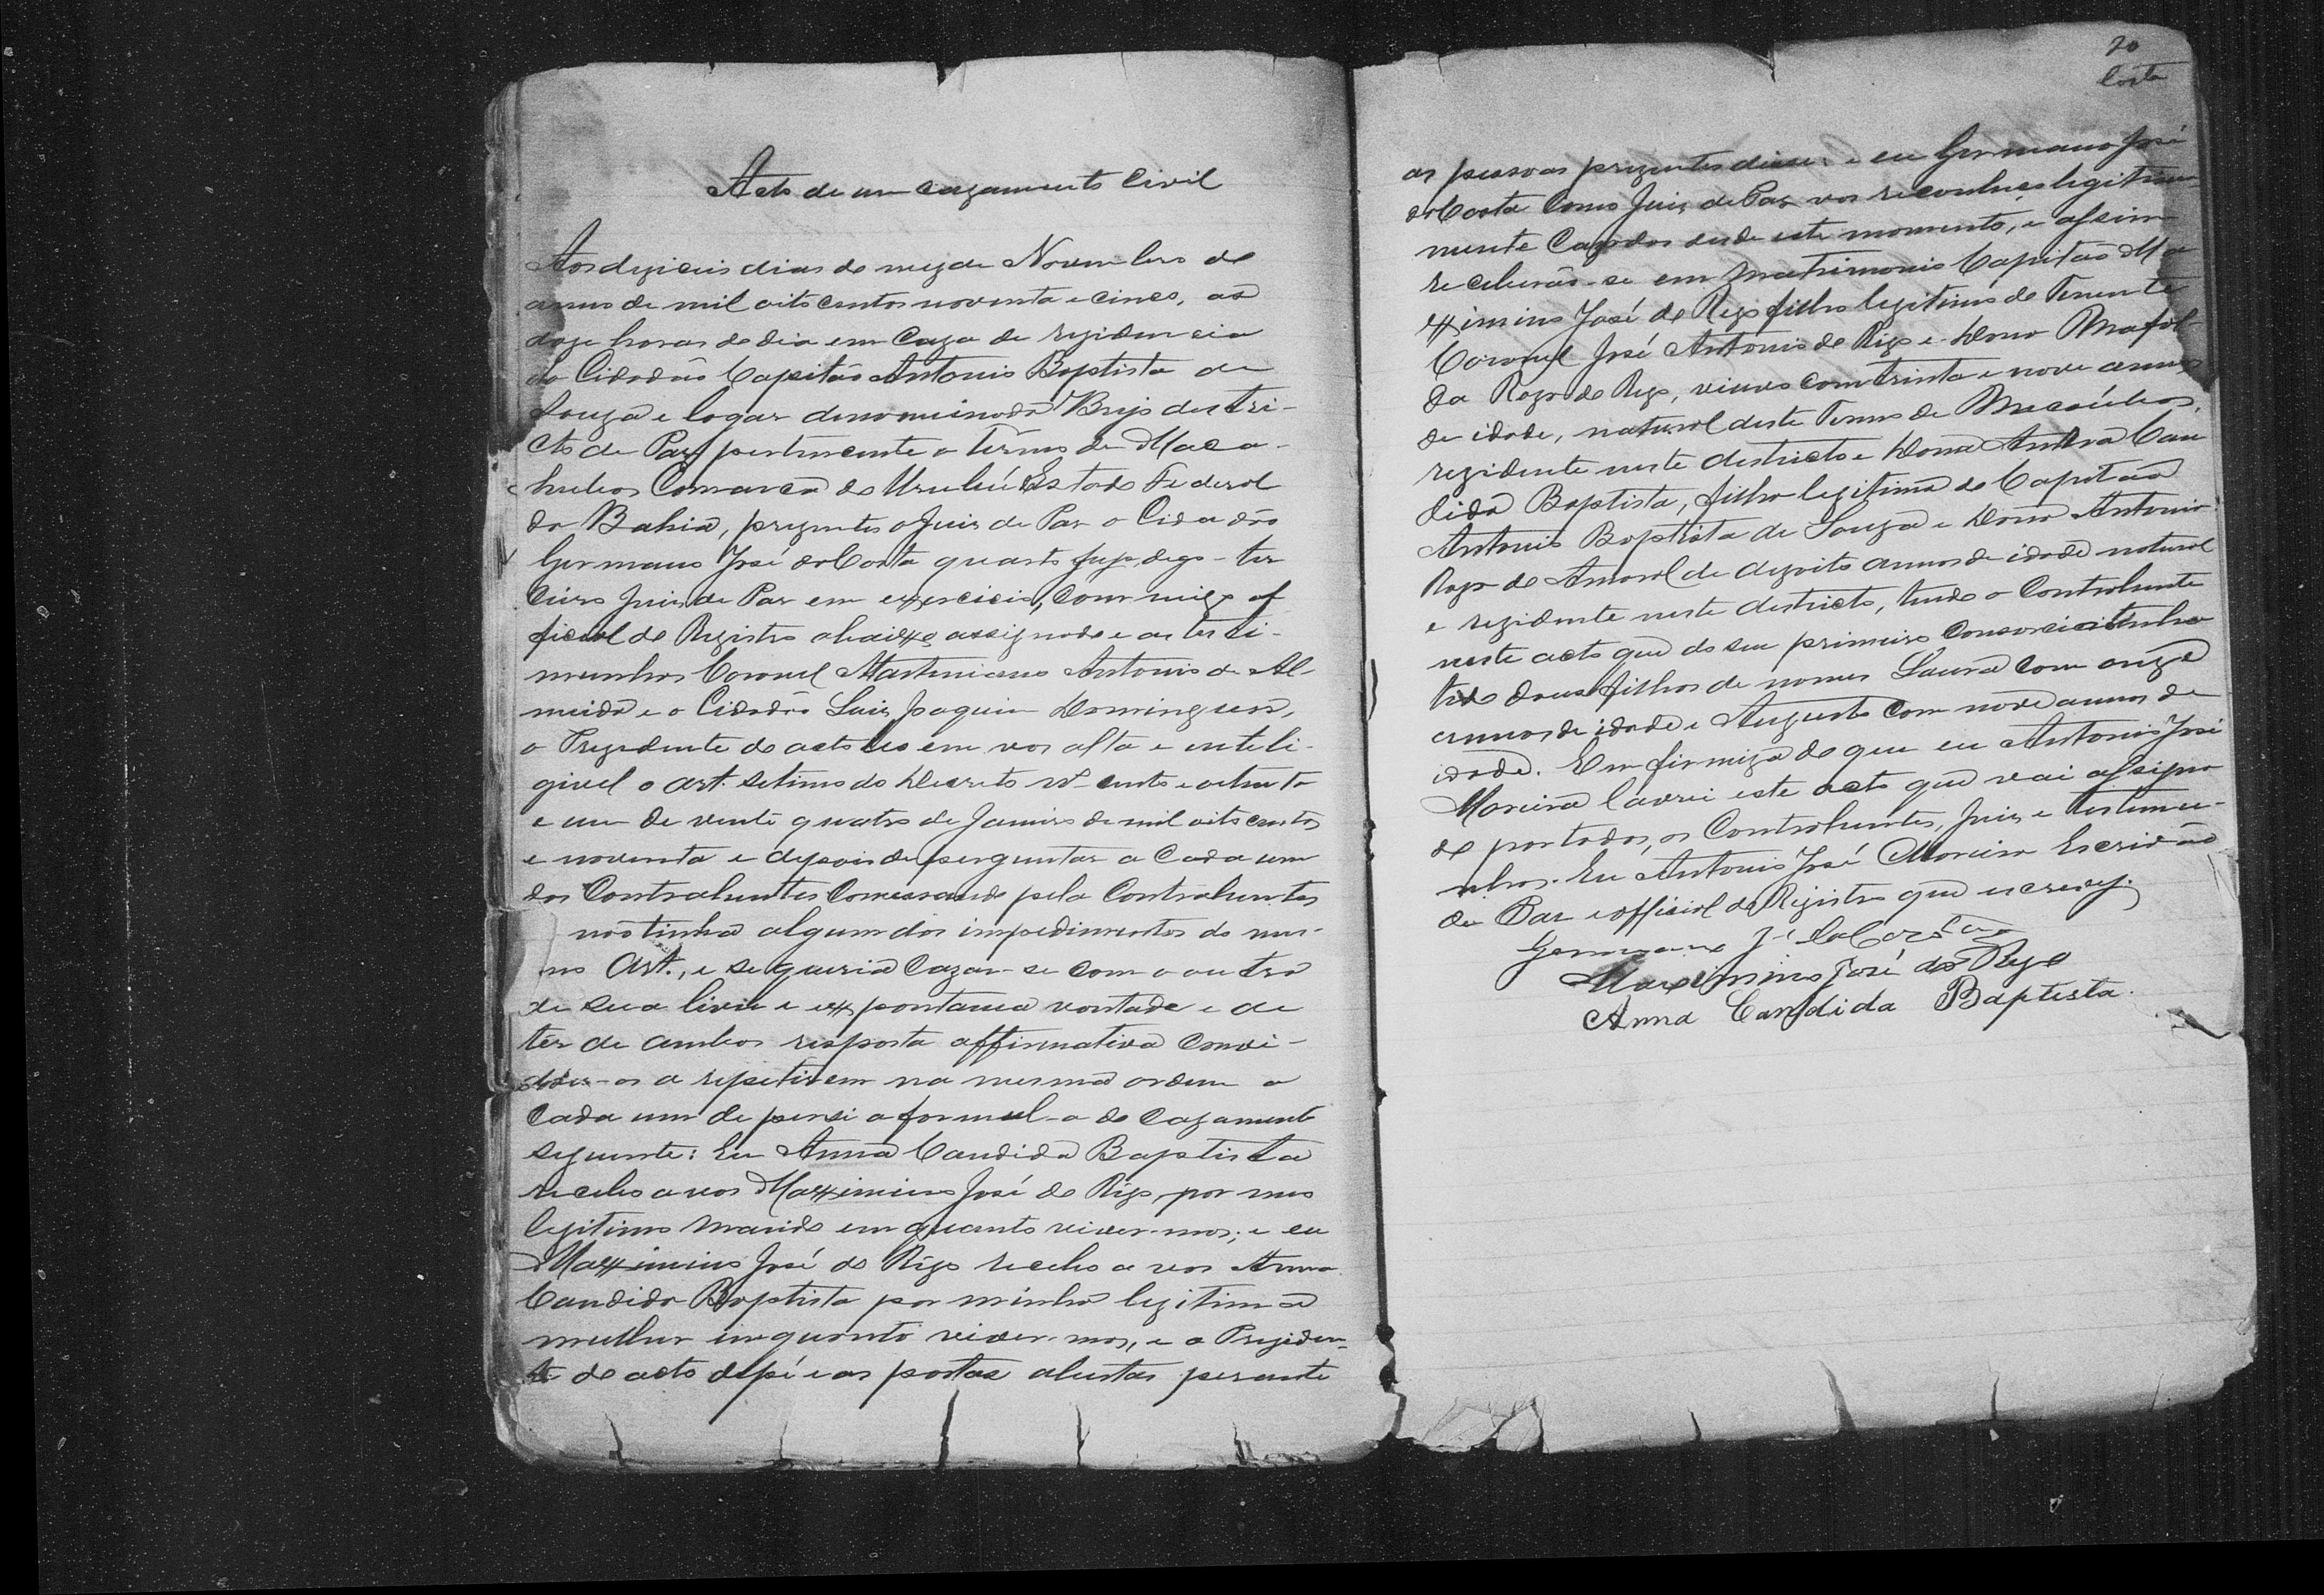 Acto de um cazamento Civil
Aos dezieis dias do mez de Novembro do
anno de mil oito centos noventa e cinco, as
doze horas do dia em Caza de rezidencia
do Cidadão Capitão Antonio Baptista de
Souza e logar denominado Brejo destri-
cto de Paz pertencente o termo de Maca-
hubas Comarca do Urubú Estado Federal
da Bahia, prezentes o Juis de Paz o Cidadão
Germano José da Costa quarto digo ter
ceiro Juis de Paz em exxercicio, commigo of
ficial do Registro abaixxo assignado e as testi-
munhas Coronel Martiniano Antonio de Al-
meida e o Cidadão Luis Joaquim Domingues,
o Prezidente do acto leo em vos alta e inteli-
givel o art. setimo do Decreto nº cento e oitenta
e um de vente quatro de Janeiro de mil oito centos
e noventa e depois de perguntar a Cada um
dos Contrahentes Comessando pela Contrahentes
não tinha algum dos impedimentos do mes-
mo Art., e se queria Cazar-se com o outro
de sua livre e exxpontanea vontade e de
ter de ambos resposta affirmativa Convi-
dou-os a repetirem na mesma ordem a
Cada um de persi a formul-a do Cazamento
seguinte: Eu Anna Candida Baptista
recebo a vos Maxximino José do Rego, por meu
legitimo marido em quanto viver-mos; e eu
Maxximino José do Rego recebo a vos Anna
Candida Baptista por minha legitima
mulher inquanto viver-mos, e o Preziden-
te do acto depé e as portas abertas perante
20
Costa
as pessoas prezentes disse: e eu Germano José
da Costa Como Juis de Paz vos reconheço legitima
mente Cazados desde este momento, e assim
receberão-se em matrimonio Capitão Ma
xximino José do Rego filho legitimo do Tenente
Coronel José Antonio do Rego e Dona Mafal-
da Roza do Rego, viuvo com trinta e nove annos
de idade, natural deste Termo de Macaúbas,
rezidente neste destricto e Dona Anna Can
dida Baptista, filha legitima do Capitão
Antonio Baptista de Souza e Dona Antonia
Roza do Amaral de dezoito annos de idade natural
e rezidente neste destricto, tendo o Contrahente
neste acto que do seu primeiro Consorcio tinha
tido dous filhos de nomes Laura com onze
annos de idade e Augusto Com nove annos de
idade. Em firmeza do que eu Antonio José
Moreira lavrei este acto que vai assigna
do por todos, os Contrahentes, Juis e testemu-
nhas. Eu Antonio José Moreira Escrivão
de Paz e official do Registro que escrevy.
Germano Jé da Costa
Maximino José do Rego
Anna Candida Baptista.